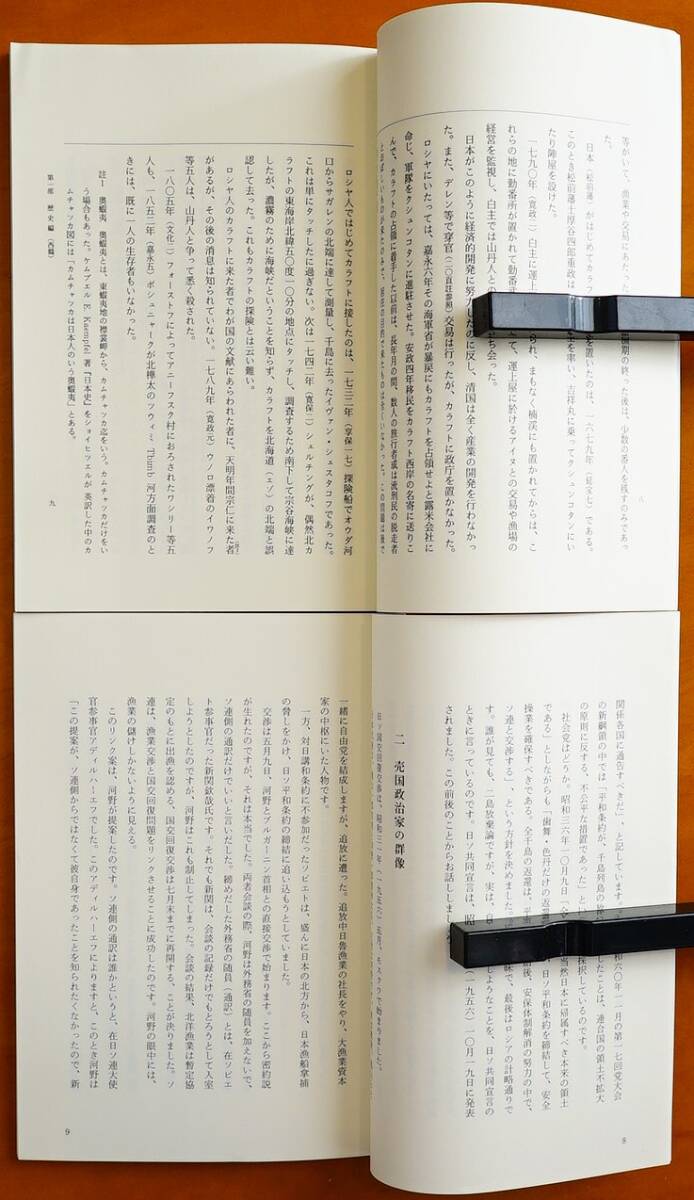 等がいて、漁業や交易にあたった
開期の終った後は、少数の番人を残すのみであっ
た。
日本(松前藩)がはじめてカラフ
を置いたのは、一六七九年(延宝七)である。
このとき松前藩士厚谷四郎重政は
を率い、吉祥丸に乗ってクシュンコタンにい
たり陣屋を設けた。
一七九〇年(寛政二)白主に運上
られ、まもなく楠渓にも置かれてからは、こ
れらの地に勤番所が置かれて勤番武
て、運上屋に於けるアイヌとの交易や漁場の
経営を監視し、白主では山丹人と
ち会った。
日本がこのように経済的開発に努力したのに反し、清国は全く産業の開発を行わなかっ
た。また、デレン等で穿官(二〇頁註参照)交易は行ったが、カラフトに政庁を置かなかった。
ロシヤにいたっては、嘉永六年その海軍省が暴戻にもカラフトを占領せよと露米会社に
命じ、軍隊をクシュンコタンに進駐させた。安政四年移民をカラフト西岸の名寄に送りこ
んで、カラフトの占領に着手した以前は、長年月の間、数人の旅行者或は流刑民の脱走者
八
ロシヤ人ではじめてカラフトに接したのは、一七三二年(享保一七)探険船でオウダ河
口からサガレンの北端に達して測量し、千島に去ったイヴァン・シェスタコフであった。
これは単にタッチしたに過ぎない。次は一七四二年(寛保二)シェルチングが、偶然北カ
ラフトの東海岸北緯五〇度一〇分の地点にタッチし、調査するため南下して宗谷海峡に達
したが、濃霧のために海峡だということを知らず、カラフトを北海道(エゾ)の北端と誤
認して去った。これもカラフトの探険とは云い難い。
ロシヤ人のカラフトに来た者でわが国の文献にあらわれた者に、天明年間宗仁に来た者
があるが、その後の消息は知られていない。一七八九年(寛政元)ウノロ漂着のイワノフ
等五人は、山丹人と争って悉く殺された。
一八〇五年(文化二)フォーストフによってアニーフスク村におろされたワシリー等五
人も、一八五二年(嘉永五)ボシュニャークが北樺太のツウィミ Tbumb 河方面調査のと
きには、既に一人の生存者もいなかった。
註1 奥蝦夷 奥蝦夷とは、東蝦夷地の襟裳岬から、カムチャッカ迄をいう。カムチャッカだけをい
う場合もあった。ケムプェル E. Kaempfel 著『日本史』をショイヒツェルが英訳した中のカ
ムチャッカ図には「カムチャッカは日本人のいう奥蝦夷」とある。
第一部 歴史編(西鶴)
九
関係各国に通告すべきだ」、と記しています。
和六〇年一一月の第一七回党大会
の新綱領の中では「平和条約が、千島列島の放
したことは、連合国の領土不拡大
の原則に反する、不公平な措置であった」とい
採択しているのです。
社会党はどうか。昭和三六年一〇月九日「全
当然日本に帰属すべき本来の領土
である」としながらも「歯舞・色丹だけの返還
、日ソ平和条約を締結して、安全
操業を確保すべきである。全千島の返還は、平
後、安保体制解消の努力の中で、
ソ連と交渉する」、という方針を決めました。
味で、最後はロシアの計略通りで
す。誰が見ても、二島放棄論ですが、実は、自
しようなことを、日ソ共同宣言の
ときに言っているのです。日ソ共同宣言は、昭
(一九五六)一〇月一九日に発表
されました。この前後のことからお話ししまし
二 売国政治家の群像
8
一緒に自由党を結成しますが、追放に遭った。追放中日魯漁業の社長をやり、大漁業資本
家の中枢にいた人物です。
一方、対日講和条約に不参加だったソビエトは、盛んに日本の北方から、日本漁船拿捕
の脅しをかけ、日ソ平和条約の締結に追い込もうとしていました。
交渉は五月九日、河野とブルガーニン首相との直接交渉で始まります。ここから密約説
が生れたのですが、それは本当でした。両者会談の際、河野は外務省の随員を加えないで、
ソ連側の通訳だけでいいと言いだした。締めだした外務省の随員(通訳)とは、在ソビエ
ト参事官だった新関欽哉氏です。それでも新関は、会談の記録だけでもとろうとして入室
しようとしたのですが、河野はこれも制止してしまった。会談の結果、北洋漁業は暫定協
定のもとに出漁を認める、国交回復交渉は七月末までに再開する、ことが決りました。ソ
連は、漁業交渉と国交回復問題をリンクさせることに成功したのです。河野の眼中には、
漁業の儲けしかないように見える。
このリンク案は、河野が提案したのです。ソ連側の通訳は誰かというと、在日ソ連大使
官参事官アディルハーエフでした。このアディルハーエフによりますと、このとき河野は
「この提案が、ソ連側からではなくて彼自身であったことを知られたくなかったので、新
9